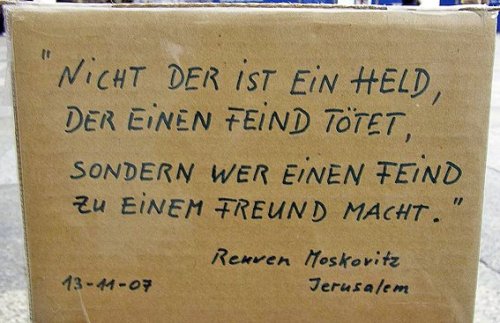 "NICHT DER IST EIN HELD,
DER EINEN FEIND TÖTET,
SONDERN WER EINEN FEIND
ZU EINEM FREUND MACHT."
Reuven Moskovitz
13-11-07 Jerusalem